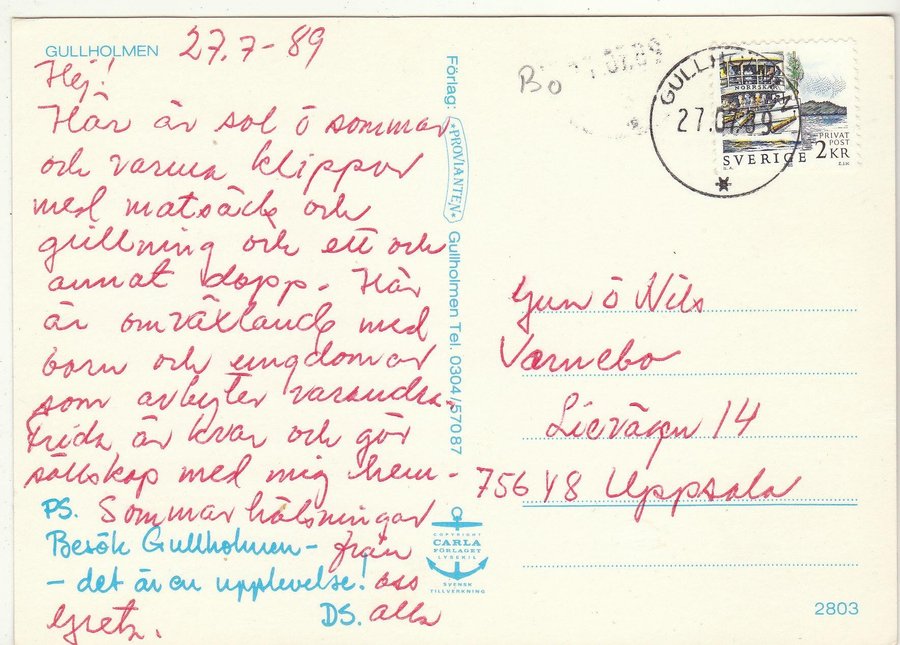 GULLHOLMEN 27.7-89
Hej!
Här är sol ö sommar
och varma klippor
med matsäck och
grillning och ett och
annat dopp. Här
är omväxlande med
barn och ungdomar
som avbyter varandra.
Frida är kvar och gör
sällskap med mig hem-
Sommarhälsningar
från
oss
alla
Greta.
PS.
Besök Gullholmen-
- det är en upplevelse!
DS.
Förlag: PROVIANTEN Gullholmen Tel. 0304/57087
COPYRIGHT
CARLA
FÖRLAGET
LYSEKIL
SVENSK
TILLVERKNING
Bo
GULLHOLMEN
27.07.89
NORRSKÄR
PRIVAT
POST
SVERIGE 2KR
Gun ö Nils
Varnebo
Lievägen 14
756 48 Uppsala
2803